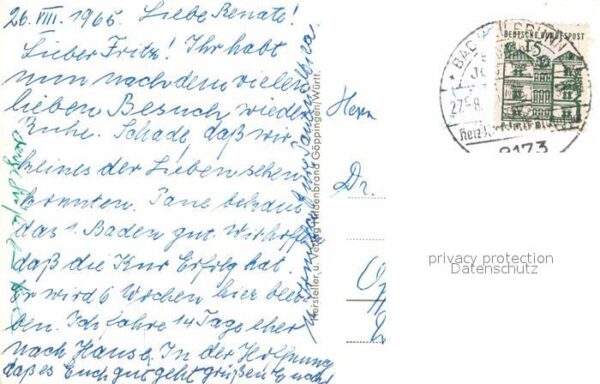 26. VIII. 1965. Liebe Renate!
Lieber Fritz! Ihr habt
nun nach dem vielen
lieben Besuch wieder
Ruhe. Schade, daß wir
keines der Lieben sehen
konnten. bekam
das 1. Baden gut. Wir hoffen
daß die Kur Erfolg hat.
Er wird 6 Wochen hier blei-
ben. Ich fahre 14 Tage eher
nach Hause. In der Hoffnung
daß es Euch gut geht grüßen Euch
Hersteller u. Verlag Hildenbrand Göppingen/Württ.
Herrn
Dr.
DEUTSCHE BUNDESPOST
15
BAD
8173
privacy protection
Datenschutz